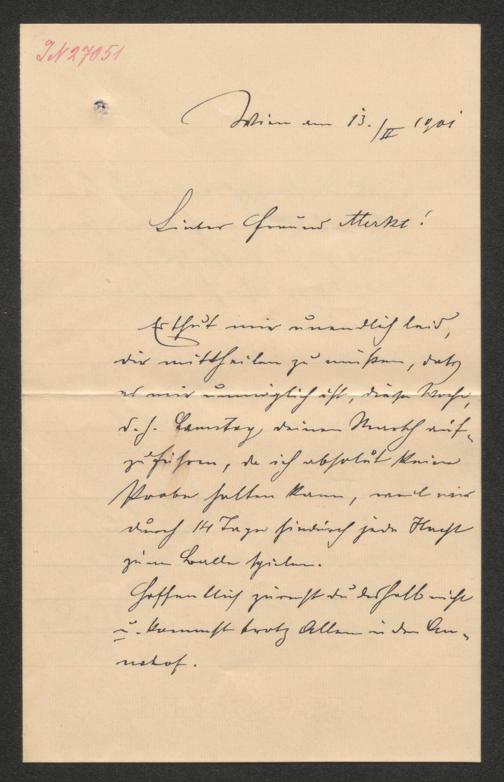 IN 27051
Wien am 13./II 1901
Lieber Freund Merkt!
Es thut mir unendlich leid,
dir mittheilen zu müßen, daß
es mir unmöglich ist, diese Woche,
d. h. Samstag, deinen Marsch auf-
zuführen, da ich absolut keine
Probe halten kann, weil wir
durch 14 Tage hindurch jede Nacht
zum Balle spielen.
Hoffentlich zürnst du deshalb nicht
u. kommst trotz Allem in den An-
nahof.